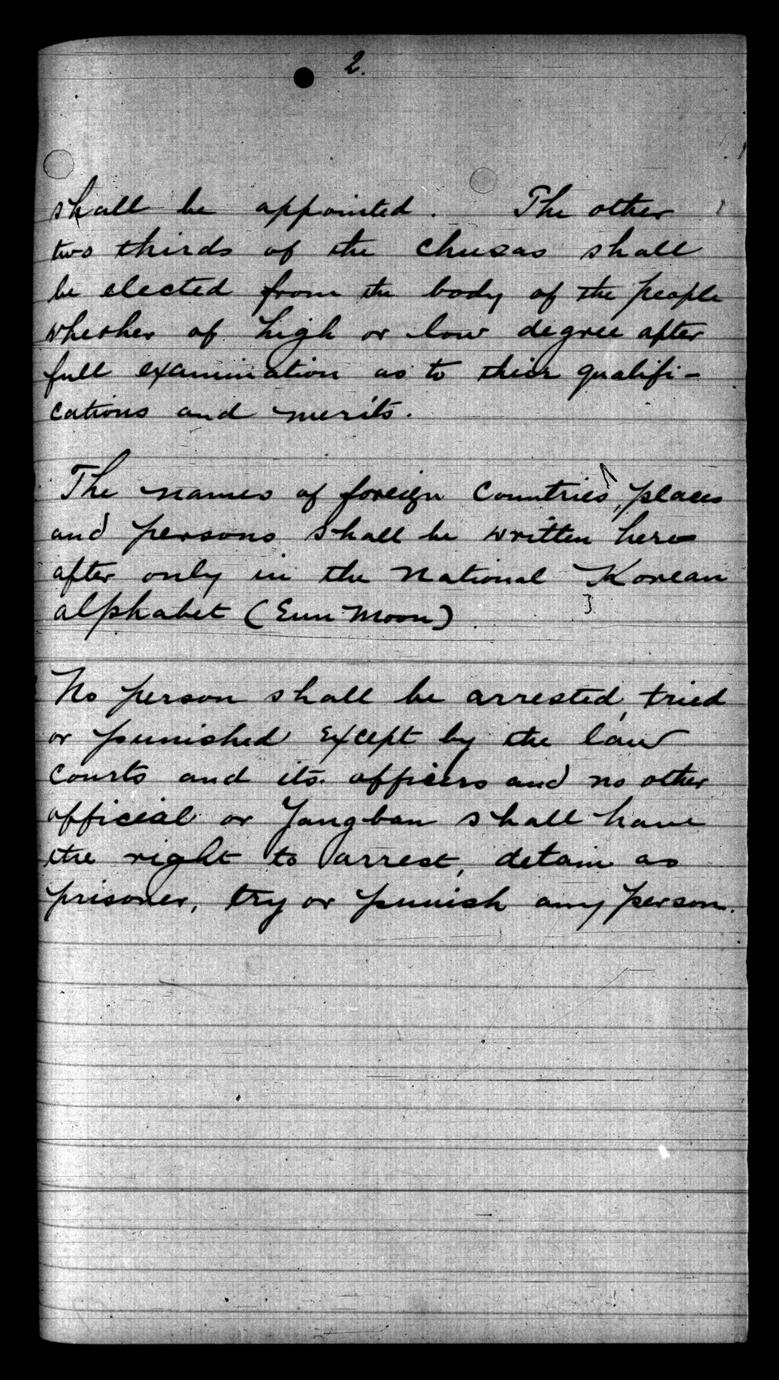 2.
shall be appointed. The other
two thirds of the Chusas shall
be elected from the body of the people
whether of high or low degree after
full examination as to their qualifi-
cations and merits.
The names of foreign Countries, places
and persons shall be written here-
after only in the National Korean
alphabet (Eun Moon).
No person shall be arrested, tried
or punished except by the law
Courts and its officers and no other
official or Yangban shall have
the right to arrest, detain as
prisoner, try or punish any person.